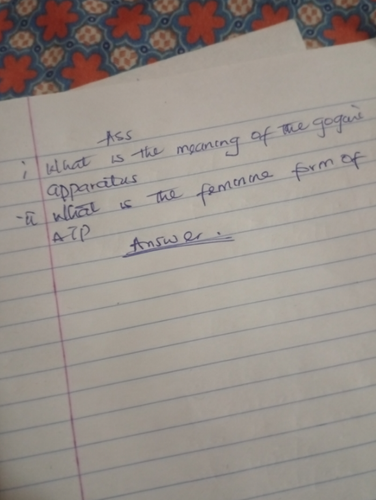 Ass
i What is the meaning of the gogais
apparatus
ii What is the feminine form of
ATP
Answer.